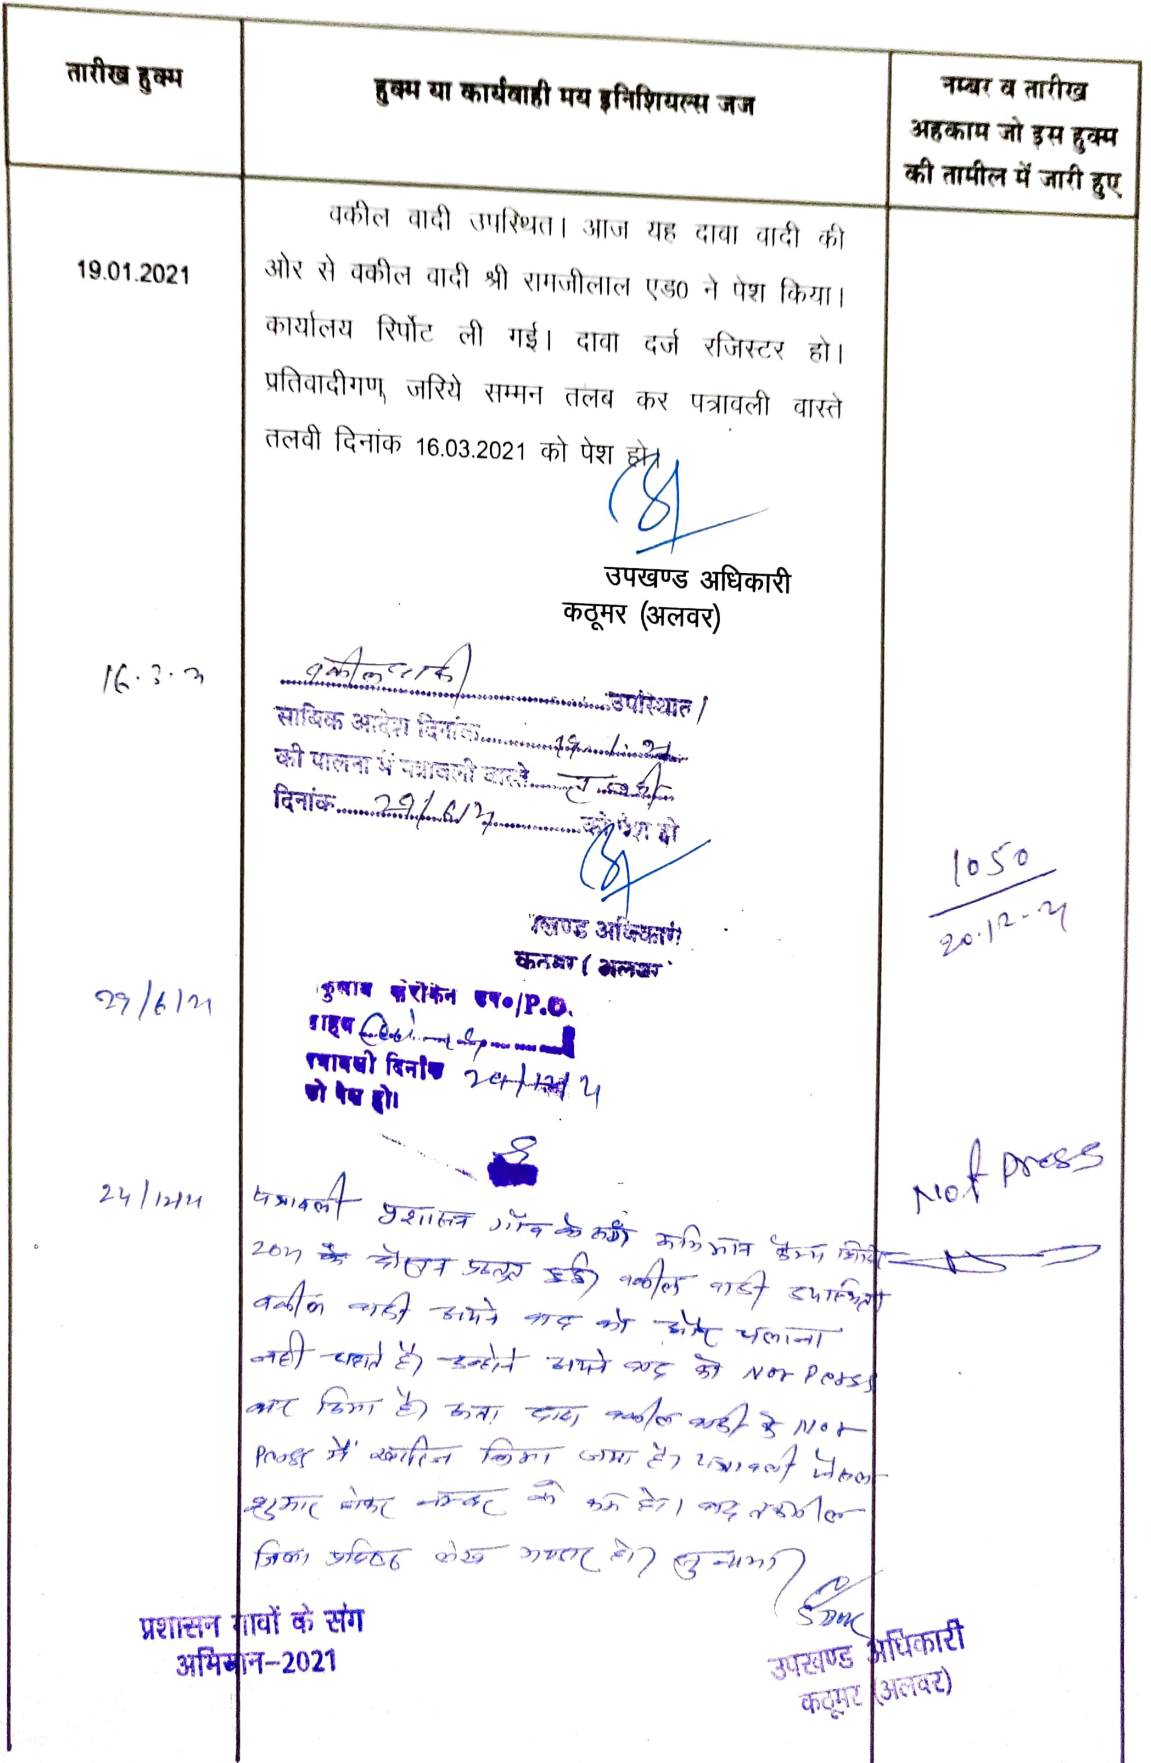 तारीख हुक्म
हुक्म या कार्यवाही मय इनिशियल्स जज
नम्बर व तारीख
अहकाम जो इस हुक्म
की तामील में जारी हुए
19.01.2021
वकील वादी उपस्थित। आज यह दावा वादी की
ओर से वकील वादी श्री रामजीलाल एड0 ने पेश किया।
कार्यालय रिर्पोट ली गई। दावा दर्ज रजिस्टर हो।
प्रतिवादीगण जरिये सम्मन तलब कर पत्रावली वास्ते
तलवी दिनांक 16.03.2021 को पेश हो।
उपखण्ड अधिकारी
कठूमर (अलवर)
16.3.21
वकील वादी उपस्थित।
साबिक आदेश दिनांक 19.1.21
की पालना में पत्रावली वास्ते तलवी
दिनांक 29/6/21 को पेश हो
खण्ड अधिकारी
कठूमर (अलवर
1050
20.12-21
29/6/21
P.O.
साहब
पत्रावली दिनांक
को पेश हो।
Not press
पत्रावली प्रशासन गाँव के संग अभियान कैम्प
2021 के दौरान प्रस्तुत हुई। वकील वादी उपस्थित।
वकील वादी अपने वाद को और चलाना
नहीं चाहते है। उन्होने अपने वाद को Not Press
कर दिया है। अतः दावा वकील वादी के Not
Press में खारिज किया जाता है। पत्रावली फैसल
शुमार होकर नम्बर से कम हो। बाद तकमील
लेख भण्डार हो। सुनाया।
प्रशासन गावों के संग
अभियान-2021
उपखण्ड अधिकारी
कठूमर (अलवर)